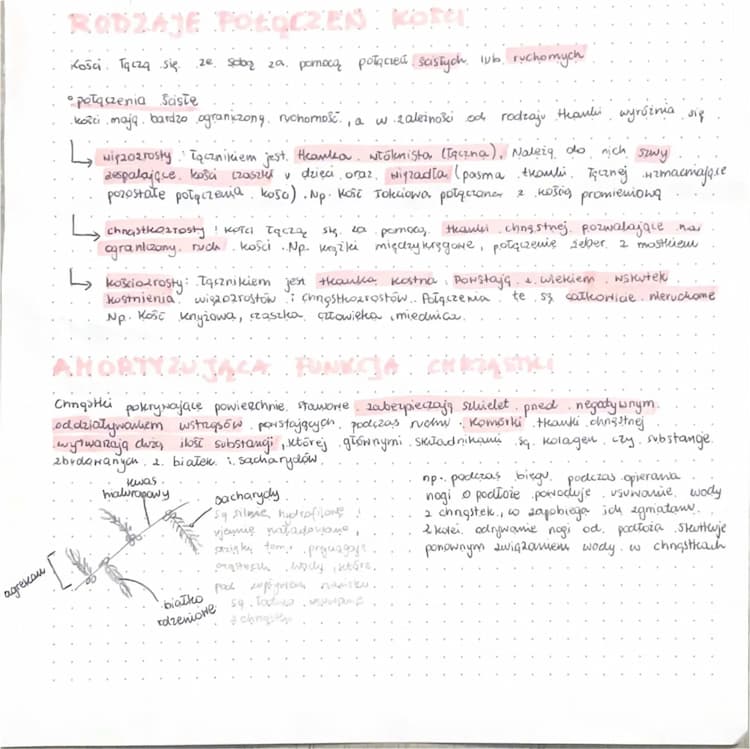 RODZAJE POŁĄCZEŃ KOŚCI
Kości łączą się ze sobą za pomocą połączeń ścisłych lub ruchomych
połączenia ścisłe
kości mają bardzo ograniczoną ruchomość, a w zależności od rodzaju tkanki wyróżnia się
więzozrosty: Łącznikiem jest tkanka włóknista (łączna). Należą do nich szwy
zespalające kości czaszki u dzieci oraz więzadła (pasma tkanki łącznej wzmacniające
pozostałe połączenia kości). Np. Kość łokciowa połączona z kością promieniową
chrząstkozrosty: kości łączą się za pomocą tkanki chrzęstnej pozwalające na
ograniczony ruch kości. Np. krążki międzykręgowe, połączenie żeber z mostkiem
kościozrosty: łącznikiem jest tkanka kostna. Powstają z wiekiem wskutek
kostnienia więzozrostów i chrząstkozrostów. Połączenia te są całkowicie nieruchome
Np. Kość krzyżowa, czaszka człowieka, miednica.
AMORTYZUJĄCA FUNKCJA CHRZĄSTKI
Chrząstki pokrywające powierzchnie stawowe zabezpieczają szkielet przed negatywnym
oddziaływaniem wstrząsów powstających podczas ruchu. Komórki tkanki chrzęstnej
wytwarzają dużą ilość substancji, której głównymi składnikami są kolagen czy substancje
zbudowanych z białek i sacharydów.
kwas
hialuronowy
sacharydy
są silnie hydrofilowe i
ujemnie naładowane,
dzięki temu przyciągają
cząsteczki wody, które
pod wpływem nacisku
są łatwo usuwane
z chrząstek
agrekan
białko
rdzeniowe
np. podczas biegu podczas opierania
nogi o podłoże powoduje usuwanie wody
z chrząstek, co zapobiega ich zgniataniu.
Z kolei odrywanie nogi od podłoża skutkuje
ponownym związaniem wody w chrząstkach